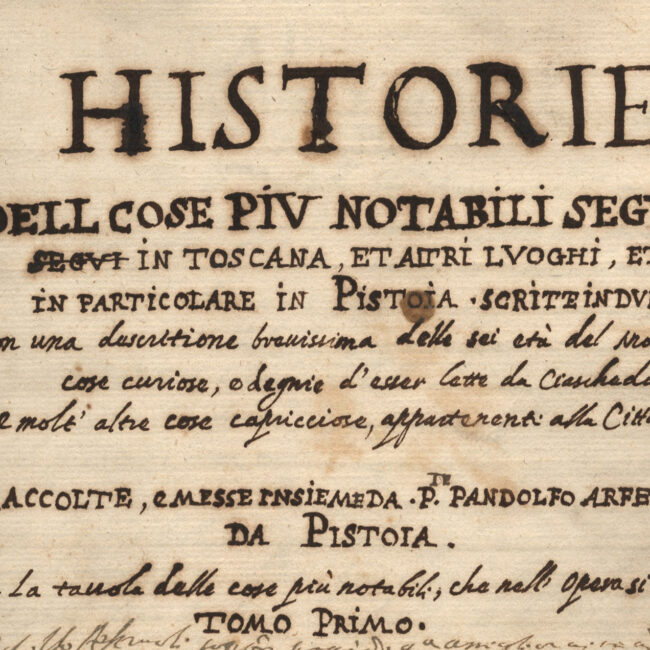 HISTORIE
DELL COSE PIV NOTABILI SEG
SEGVI IN TOSCANA, ET ALTRI LVOGHI, ET
IN PARTICOLARE IN PISTOIA. SCRITTE IN DV
on una descritione breuissima delle sei età del mo
cose curiose, e degnie d'esser lette da Ciascheda
e molt' altre cose capricciose, appartenenti alla Citt
ACCOLTE, E MESSE INSIEME DA. P.TE PANDOLFO ARFE
DA PISTOIA.
La tauola delle cose più notabili, che nell' opera si
TOMO PRIMO.